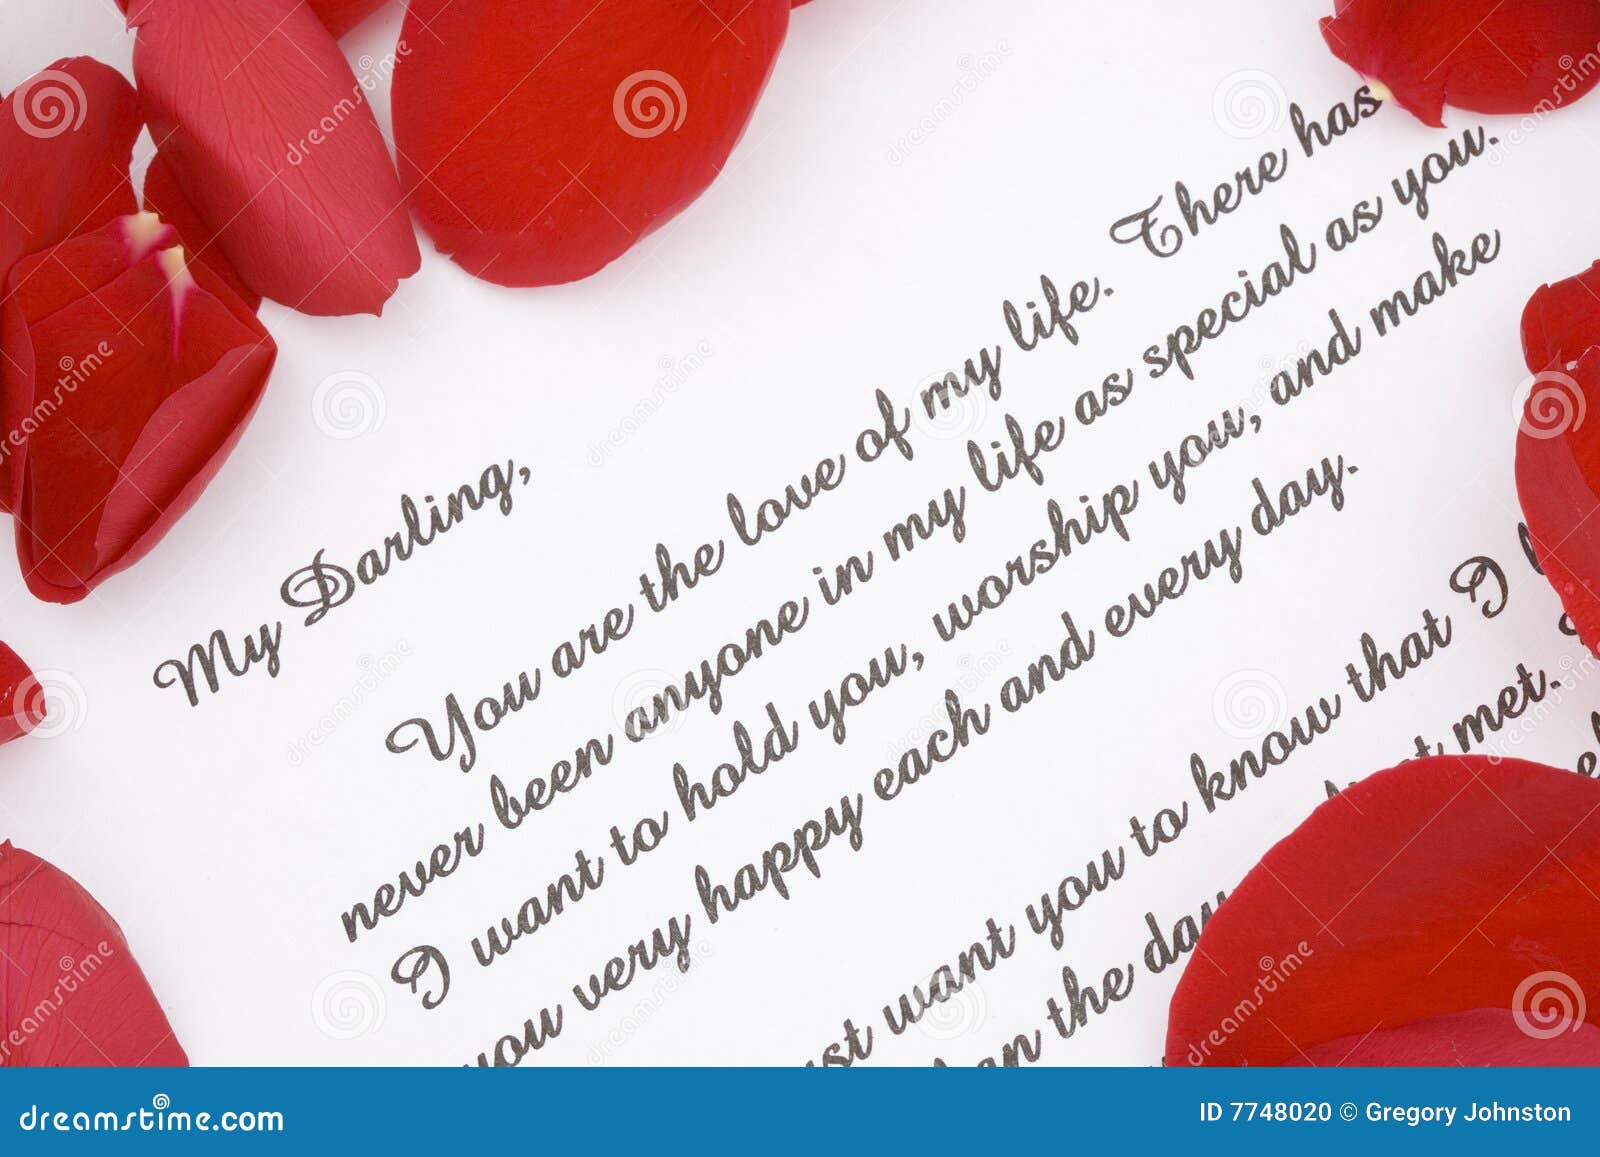 My Darling,
You are the love of my life. There has
never been anyone in my life as special as you.
I want to hold you, worship you, and make
you very happy each and every day.
want you to know that I
the day met.
dreamstime.com
ID 7748020 © Gregory Johnston